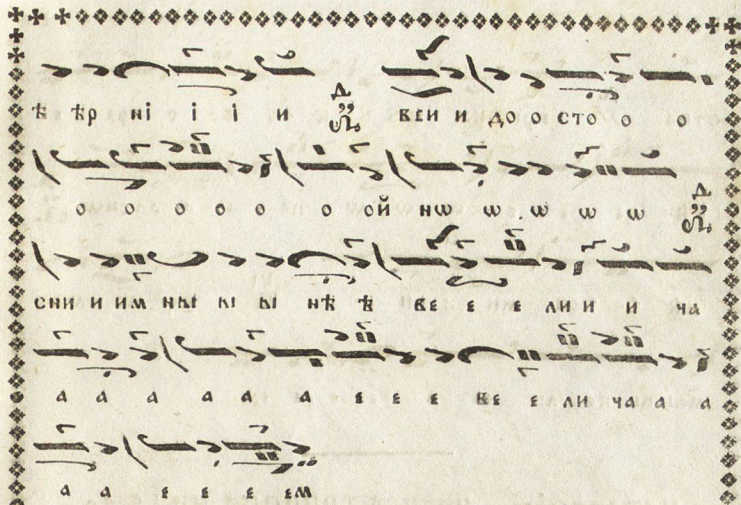 ѣ ѣр ні і і и веи и до о сто о о
о о о о о о ой нѡ ѡ ѡ ѡ ѡ
сни и им ны ы ы нѣ ѣ ве е е е ли и и ча
а а а а а а е е е ве е ли ча а а
а а е е е ем